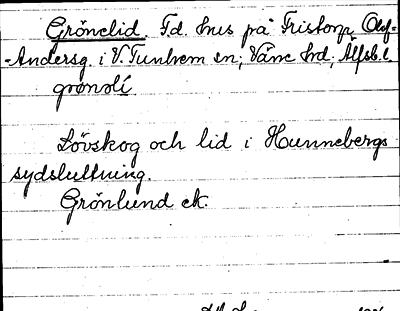 Grönelid. F.d. hus på Fristorp Olof-
-Andersg. i V. Tunhem sn; Väne hd; Älfsb. l.
grønolí
Lövskog och lid i Hunnebergs
sydsluttning.
Grönlund ek.